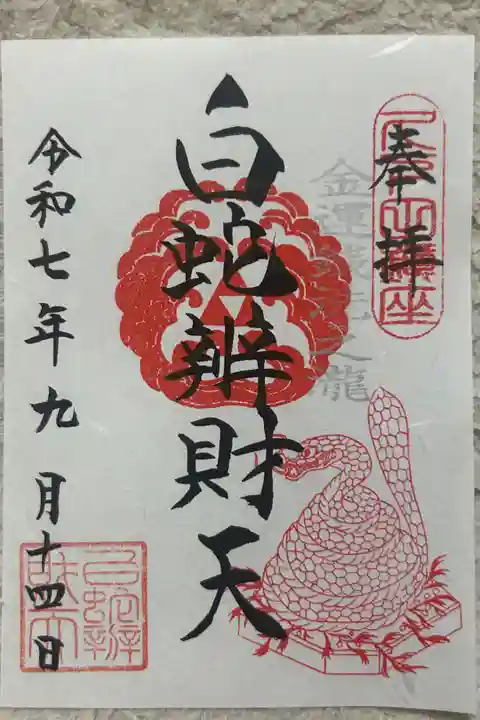 奉拝
金運銭洗之瀧
白蛇辨財天
令和七年九月十四日
白蛇辨
財天